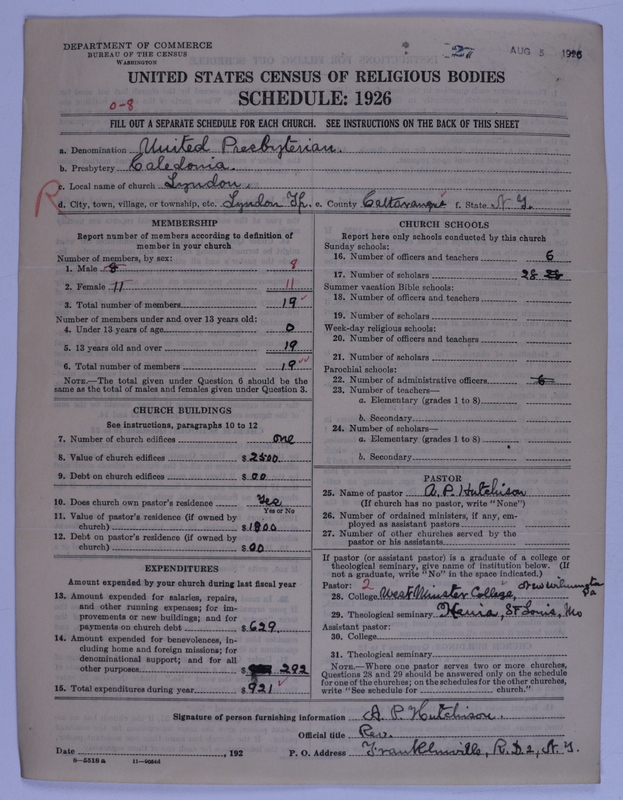 DEPARTMENT OF COMMERCE
BUREAU OF THE CENSUS
WASHINGTON
27 AUG 5 1926
UNITED STATES CENSUS OF RELIGIOUS BODIES
SCHEDULE: 1926
0-8
FILL OUT A SEPARATE SCHEDULE FOR EACH CHURCH. SEE INSTRUCTIONS ON THE BACK OF THIS SHEET
a. Denomination United Presbyterian.
b. Presbytery Caledonia.
c. Local name of church Lyndon.
R
d. City, town, village, or township, etc. Lyndon Tp. e. County Cattaraugus f. State N. Y.
MEMBERSHIP
Report number of members according to definition of
member in your church
Number of members, by sex:
1. Male 8 8
2. Female 11 11
3. Total number of members 19
Number of members under and over 13 years old:
4. Under 13 years of age 0
5. 13 years old and over 19
6. Total number of members 19
NOTE.—The total given under Question 6 should be the
same as the total of males and females given under Question 3.
CHURCH BUILDINGS
See instructions, paragraphs 10 to 12
7. Number of church edifices one
8. Value of church edifices $ 2500.
9. Debt on church edifices $ 00
10. Does church own pastor's residence Yes
Yes or No
11. Value of pastor's residence (if owned by
church) $ 1800
12. Debt on pastor's residence (if owned by
church) $ 00
EXPENDITURES
Amount expended by your church during last fiscal year
13. Amount expended for salaries, repairs,
and other running expenses; for im-
provements or new buildings; and for
payments on church debt $ 629.
14. Amount expended for benevolences, in-
cluding home and foreign missions; for
denominational support; and for all
other purposes $ 292
15. Total expenditures during year $ 921
CHURCH SCHOOLS
Report here only schools conducted by this church
Sunday schools:
16. Number of officers and teachers 6
17. Number of scholars 28 28
Summer vacation Bible schools:
18. Number of officers and teachers
19. Number of scholars
Week-day religious schools:
20. Number of officers and teachers
21. Number of scholars
Parochial schools:
22. Number of administrative officers 6
23. Number of teachers—
a. Elementary (grades 1 to 8)
b. Secondary
24. Number of scholars—
a. Elementary (grades 1 to 8)
b. Secondary
PASTOR
25. Name of pastor A. P. Hutchison
(If church has no pastor, write "None")
26. Number of ordained ministers, if any, em-
ployed as assistant pastors
27. Number of other churches served by the
pastor or his assistants
If pastor (or assistant pastor) is a graduate of a college or
theological seminary, give name of institution below. (If
not a graduate, write "No" in the space indicated.)
Pastor: 2
28. College West Minster College, New Wilmington Pa
29. Theological seminary Xenia, St Louis, Mo
Assistant pastor:
30. College
31. Theological seminary
NOTE.—Where one pastor serves two or more churches,
Questions 28 and 29 should be answered only on the schedule
for one of the churches; on the schedules for the other churches,
write "See schedule for church."
Signature of person furnishing information A. P. Hutchison.
Official title Rev.
Date , 192 P. O. Address Franklinville, R.D. 2, N. Y.
8—5518 a